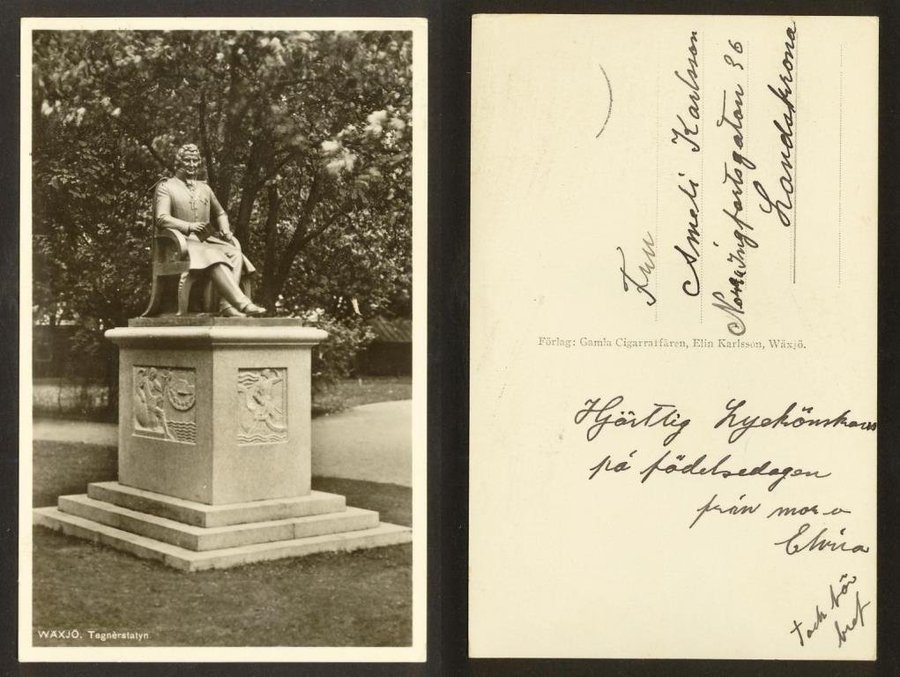 WÄXJÖ. Tegnérstatyn
Fru
Ameli Karlsson
Norra Ingfartsgatan 36
Landskrona
Förlag: Gamla Cigarraffären, Elin Karlsson, Wäxjö.
Hjärtlig Lyckönskan
på födelsedagen
från mor o
Elvira
tack för
bref